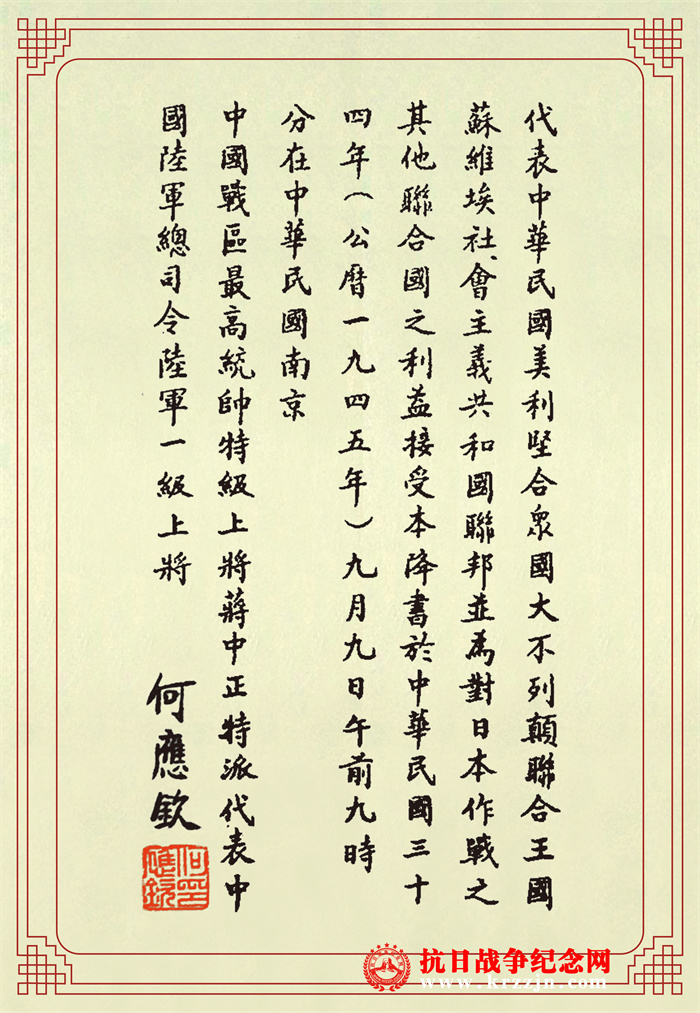 代表中華民國美利堅合衆國大不列顛聯合王國
蘇維埃社會主義共和國聯邦並為對日本作戰之
其他聯合國之利益接受本降書於中華民國三十
四年(公曆一九四五年)九月九日午前九時
分在中華民國南京
中國戰區最高統帥特級上將蔣中正特派代表中
國陸軍總司令陸軍一級上將
何應欽
何應欽印
抗日战争纪念网
www.krzzjn.com